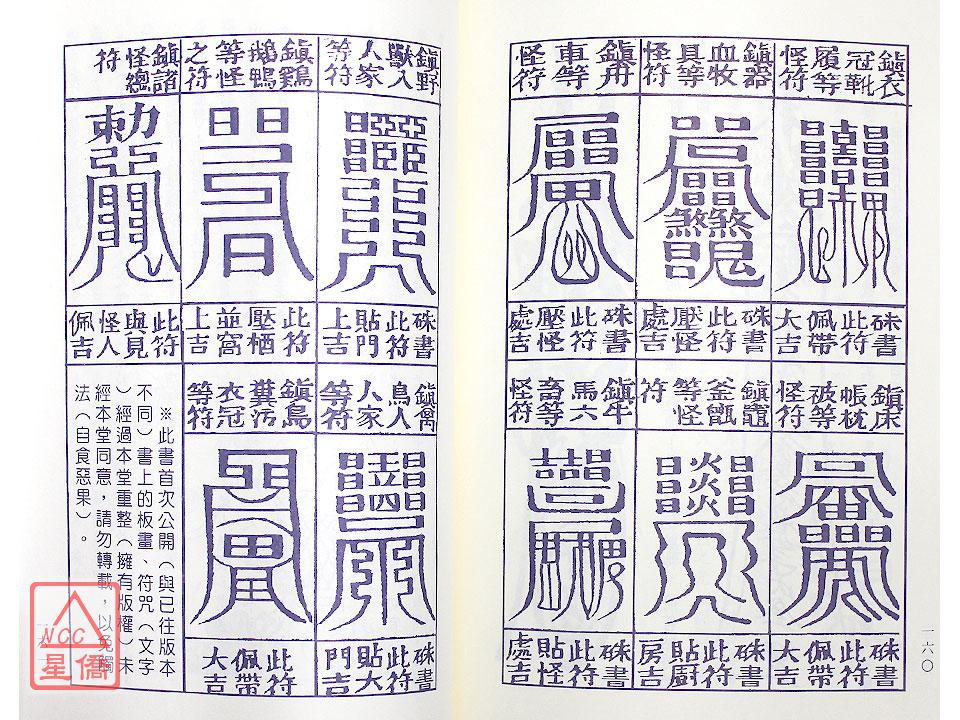 鎮衣
冠靴
履等
怪符
硃書
此符
佩帶
大吉
鎮器
血牧
具等
怪符
硃書
此符
壓怪
處吉
鎮舟
車等
怪符
硃書
此符
壓怪
處吉
鎮床
帳枕
被等
怪符
硃書
此符
佩帶
大吉
鎮竈
釜甑
等怪
符
硃書
此符
貼廚
房吉
鎮牛
馬六
畜等
怪符
硃書
此符
貼怪
處吉
一六〇
鎮野
獸入
人家
等符
硃書
此符
貼門
上吉
鎮鷄
鵝鴨
等怪
之符
此符
壓栖
並窩
上吉
鎮諸
怪總
符
勅
此符
與見
怪人
佩吉
鎮禽
鳥入
人家
等符
硃書
此符
貼大
門吉
鎮鳥
糞污
衣冠
等符
此符
佩帶
大吉
※此書首次公開（與已往版本
不同）書上的板畫、符咒（文字
）經過本堂重整（擁有版權）未
經本堂同意，請勿轉載，以免觸
法（自食惡果）。
NCC
星僑